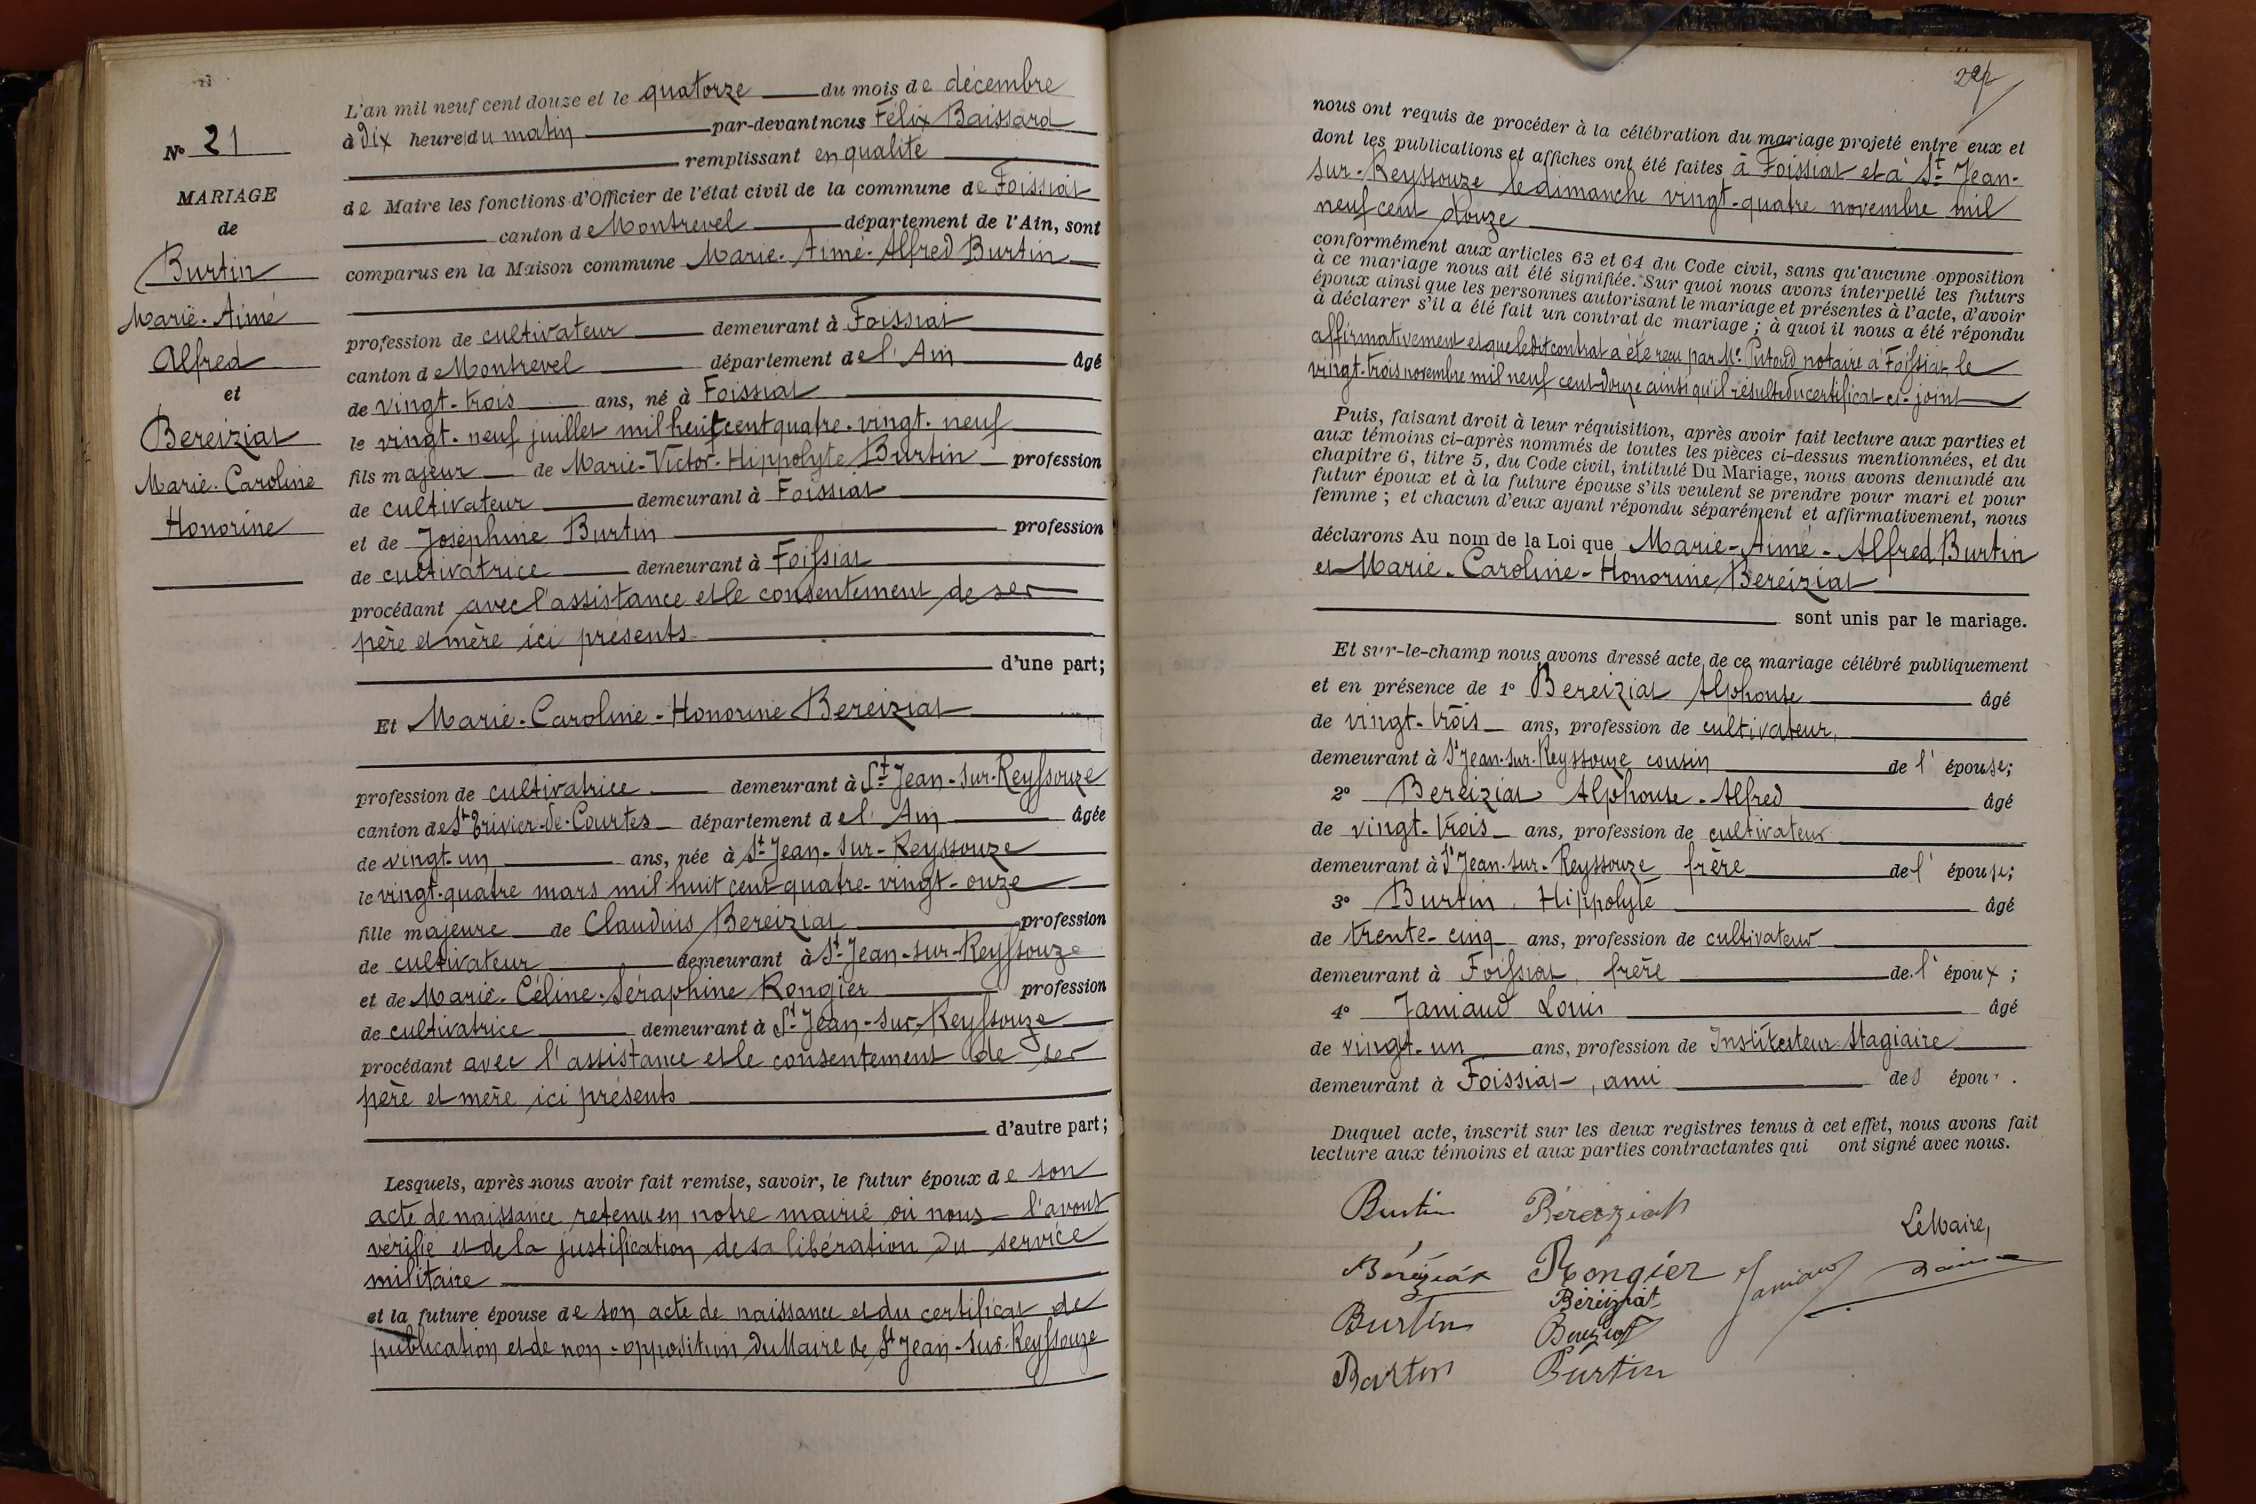 N° 21
MARIAGE
de
Burtin
Marie-Aimé
Alfred
et
Bereiziat
Marie-Caroline
Honorine
L'an mil neuf cent douze et le quatorze du mois de décembre
à dix heures du matin par-devant nous Félix Baissard
remplissant en qualité
de Maire les fonctions d'Officier de l'état civil de la commune de Foissiat
canton de Montrevel département de l'Ain, sont
comparus en la Maison commune Marie-Aimé-Alfred Burtin
profession de cultivateur demeurant à Foissiat
canton de Montrevel département de l'Ain âgé
de vingt-trois ans, né à Foissiat
le vingt-neuf juillet mil huit cent quatre-vingt-neuf
fils majeur de Marie-Victor-Hippolyte Burtin profession
de cultivateur demeurant à Foissiat
et de Joséphine Burtin profession
de cultivatrice demeurant à Foissiat
procédant avec l'assistance et le consentement de ses
père et mère ici présents
d'une part;
Et Marie-Caroline-Honorine Bereiziat
profession de cultivatrice demeurant à St-Jean-sur-Reyssouze
canton de St Trivier-de-Courtes département de l'Ain âgée
de vingt-un ans, née à St-Jean-sur-Reyssouze
le vingt-quatre mars mil huit cent quatre-vingt-onze
fille majeure de Claudius Bereiziat profession
de cultivateur demeurant à St-Jean-sur-Reyssouze
et de Marie-Céline-Séraphine Rongier profession
de cultivatrice demeurant à St-Jean-sur-Reyssouze
procédant avec l'assistance et le consentement de ses
père et mère ici présents
d'autre part;
Lesquels, après nous avoir fait remise, savoir, le futur époux de son
acte de naissance retenu en notre mairie où nous l'avons
vérifié et de la justification de sa libération du service
militaire
et la future épouse de son acte de naissance et du certificat de
publication et de non-opposition du Maire de St Jean-sur-Reyssouze
nous ont requis de procéder à la célébration du mariage projeté entre eux et
dont les publications et affiches ont été faites à Foissiat et à St-Jean-
sur-Reyssouze le dimanche vingt-quatre novembre mil
neuf cent douze
conformément aux articles 63 et 64 du Code civil, sans qu'aucune opposition
à ce mariage nous ait été signifiée. Sur quoi nous avons interpellé les futurs
époux ainsi que les personnes autorisant le mariage et présentes à l'acte, d'avoir
à déclarer s'il a été fait un contrat de mariage ; à quoi il nous a été répondu
affirmativement et que ledit contrat a été reçu par Me notaire à Foissiat le
vingt-trois novembre mil neuf cent douze ainsi qu'il résulte du certificat ci-joint
Puis, faisant droit à leur réquisition, après avoir fait lecture aux parties et
aux témoins ci-après nommés de toutes les pièces ci-dessus mentionnées, et du
chapitre 6, titre 5, du Code civil, intitulé Du Mariage, nous avons demandé au
futur époux et à la future épouse s'ils veulent se prendre pour mari et pour
femme ; et chacun d'eux ayant répondu séparément et affirmativement, nous
déclarons Au nom de la Loi que Marie-Aimé-Alfred Burtin
et Marie-Caroline-Honorine Bereiziat
sont unis par le mariage.
Et sur-le-champ nous avons dressé acte de ce mariage célébré publiquement
et en présence de 1° Bereiziat Alphonse âgé
de vingt-trois ans, profession de cultivateur,
demeurant à St Jean-sur-Reyssouze cousin de l'épouse;
2° Bereiziat Alphonse-Alfred âgé
de vingt-trois ans, profession de cultivateur
demeurant à St Jean-sur-Reyssouze frère de l'épouse;
3° Burtin Hippolyte âgé
de trente-cinq ans, profession de cultivateur
demeurant à Foissiat, frère de l'époux ;
4° Janiaud Louis âgé
de vingt-un ans, profession de Instituteur Stagiaire
demeurant à Foissiat, ami des épou .
Duquel acte, inscrit sur les deux registres tenus à cet effet, nous avons fait
lecture aux témoins et aux parties contractantes qui ont signé avec nous.
Burtin Béreiziat
Le Maire,
Béréziat Rongier Janiaud
Béréiziat
Burtin Bereiziat
Burtin Burtin